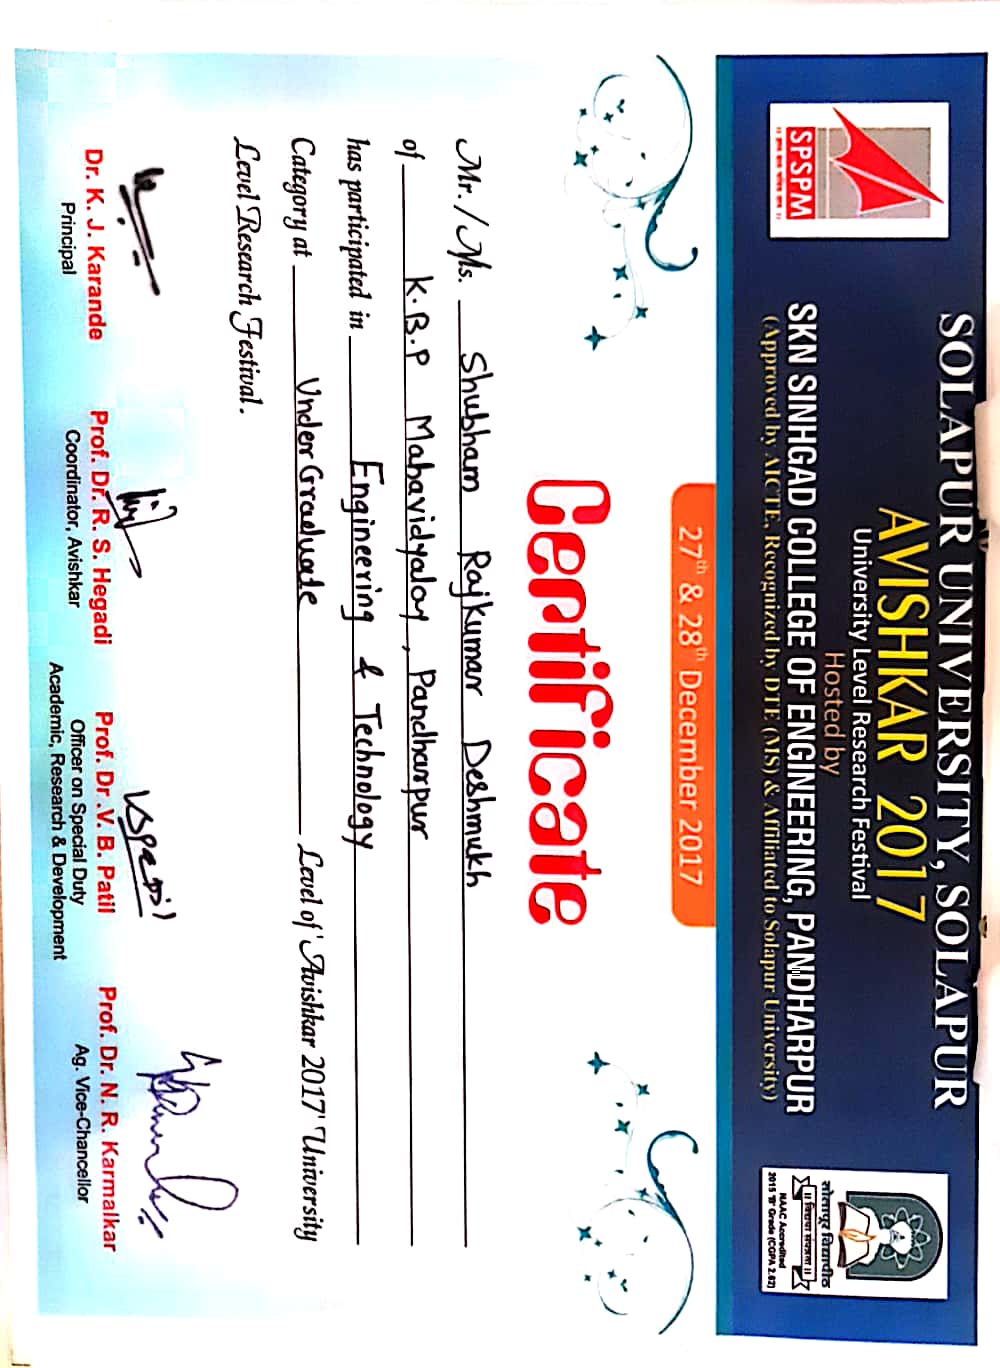 SOLAPUR UNIVERSITY, SOLAPUR
AVISHKAR 2017
University Level Research Festival
Hosted by
SKN SINHGAD COLLEGE OF ENGINEERING, PANDHARPUR
(Approved by AICTE, Recognized by DTE (MS) & Affiliated to Solapur University)
SPSPM
सोलापूर विद्यापीठ
॥ विद्यया संपन्नता ॥
NAAC Accredited
2015 'B' Grade (CGPA 2.62)
27th & 28th December 2017
Certificate
Mr. / Ms. Shubham Rajkumar Deshmukh
of K.B.P Mahavidyalay, Pandharpur
has participated in Engineering & Technology
Category at Under Graduate Level of 'Avishkar 2017' University
Level Research Festival.
Dr. K. J. Karande
Principal
Prof. Dr. R. S. Hegadi
Coordinator, Avishkar
Prof. Dr .V. B. Patil
Officer on Special Duty
Academic, Research & Development
Prof. Dr. N. R. Karmalkar
Ag. Vice-Chancellor